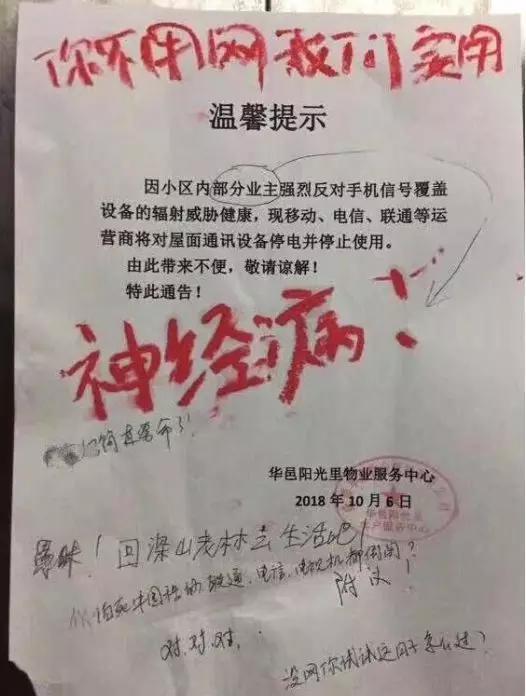 你不用网我们实用
温馨提示
因小区内部分业主强烈反对手机信号覆盖
设备的辐射威胁健康，现移动、电信、联通等运
营商将对屋面通讯设备停电并停止使用。
由此带来不便，敬请谅解！
特此通告！
神经病！
华邑阳光里物业服务中心
2018 年 10 月 6 日
华邑阳光里
客户服务中心
愚昧！回深山老林去生活吧！
附议！
对.对.对.
没网你试试这日子怎么过？